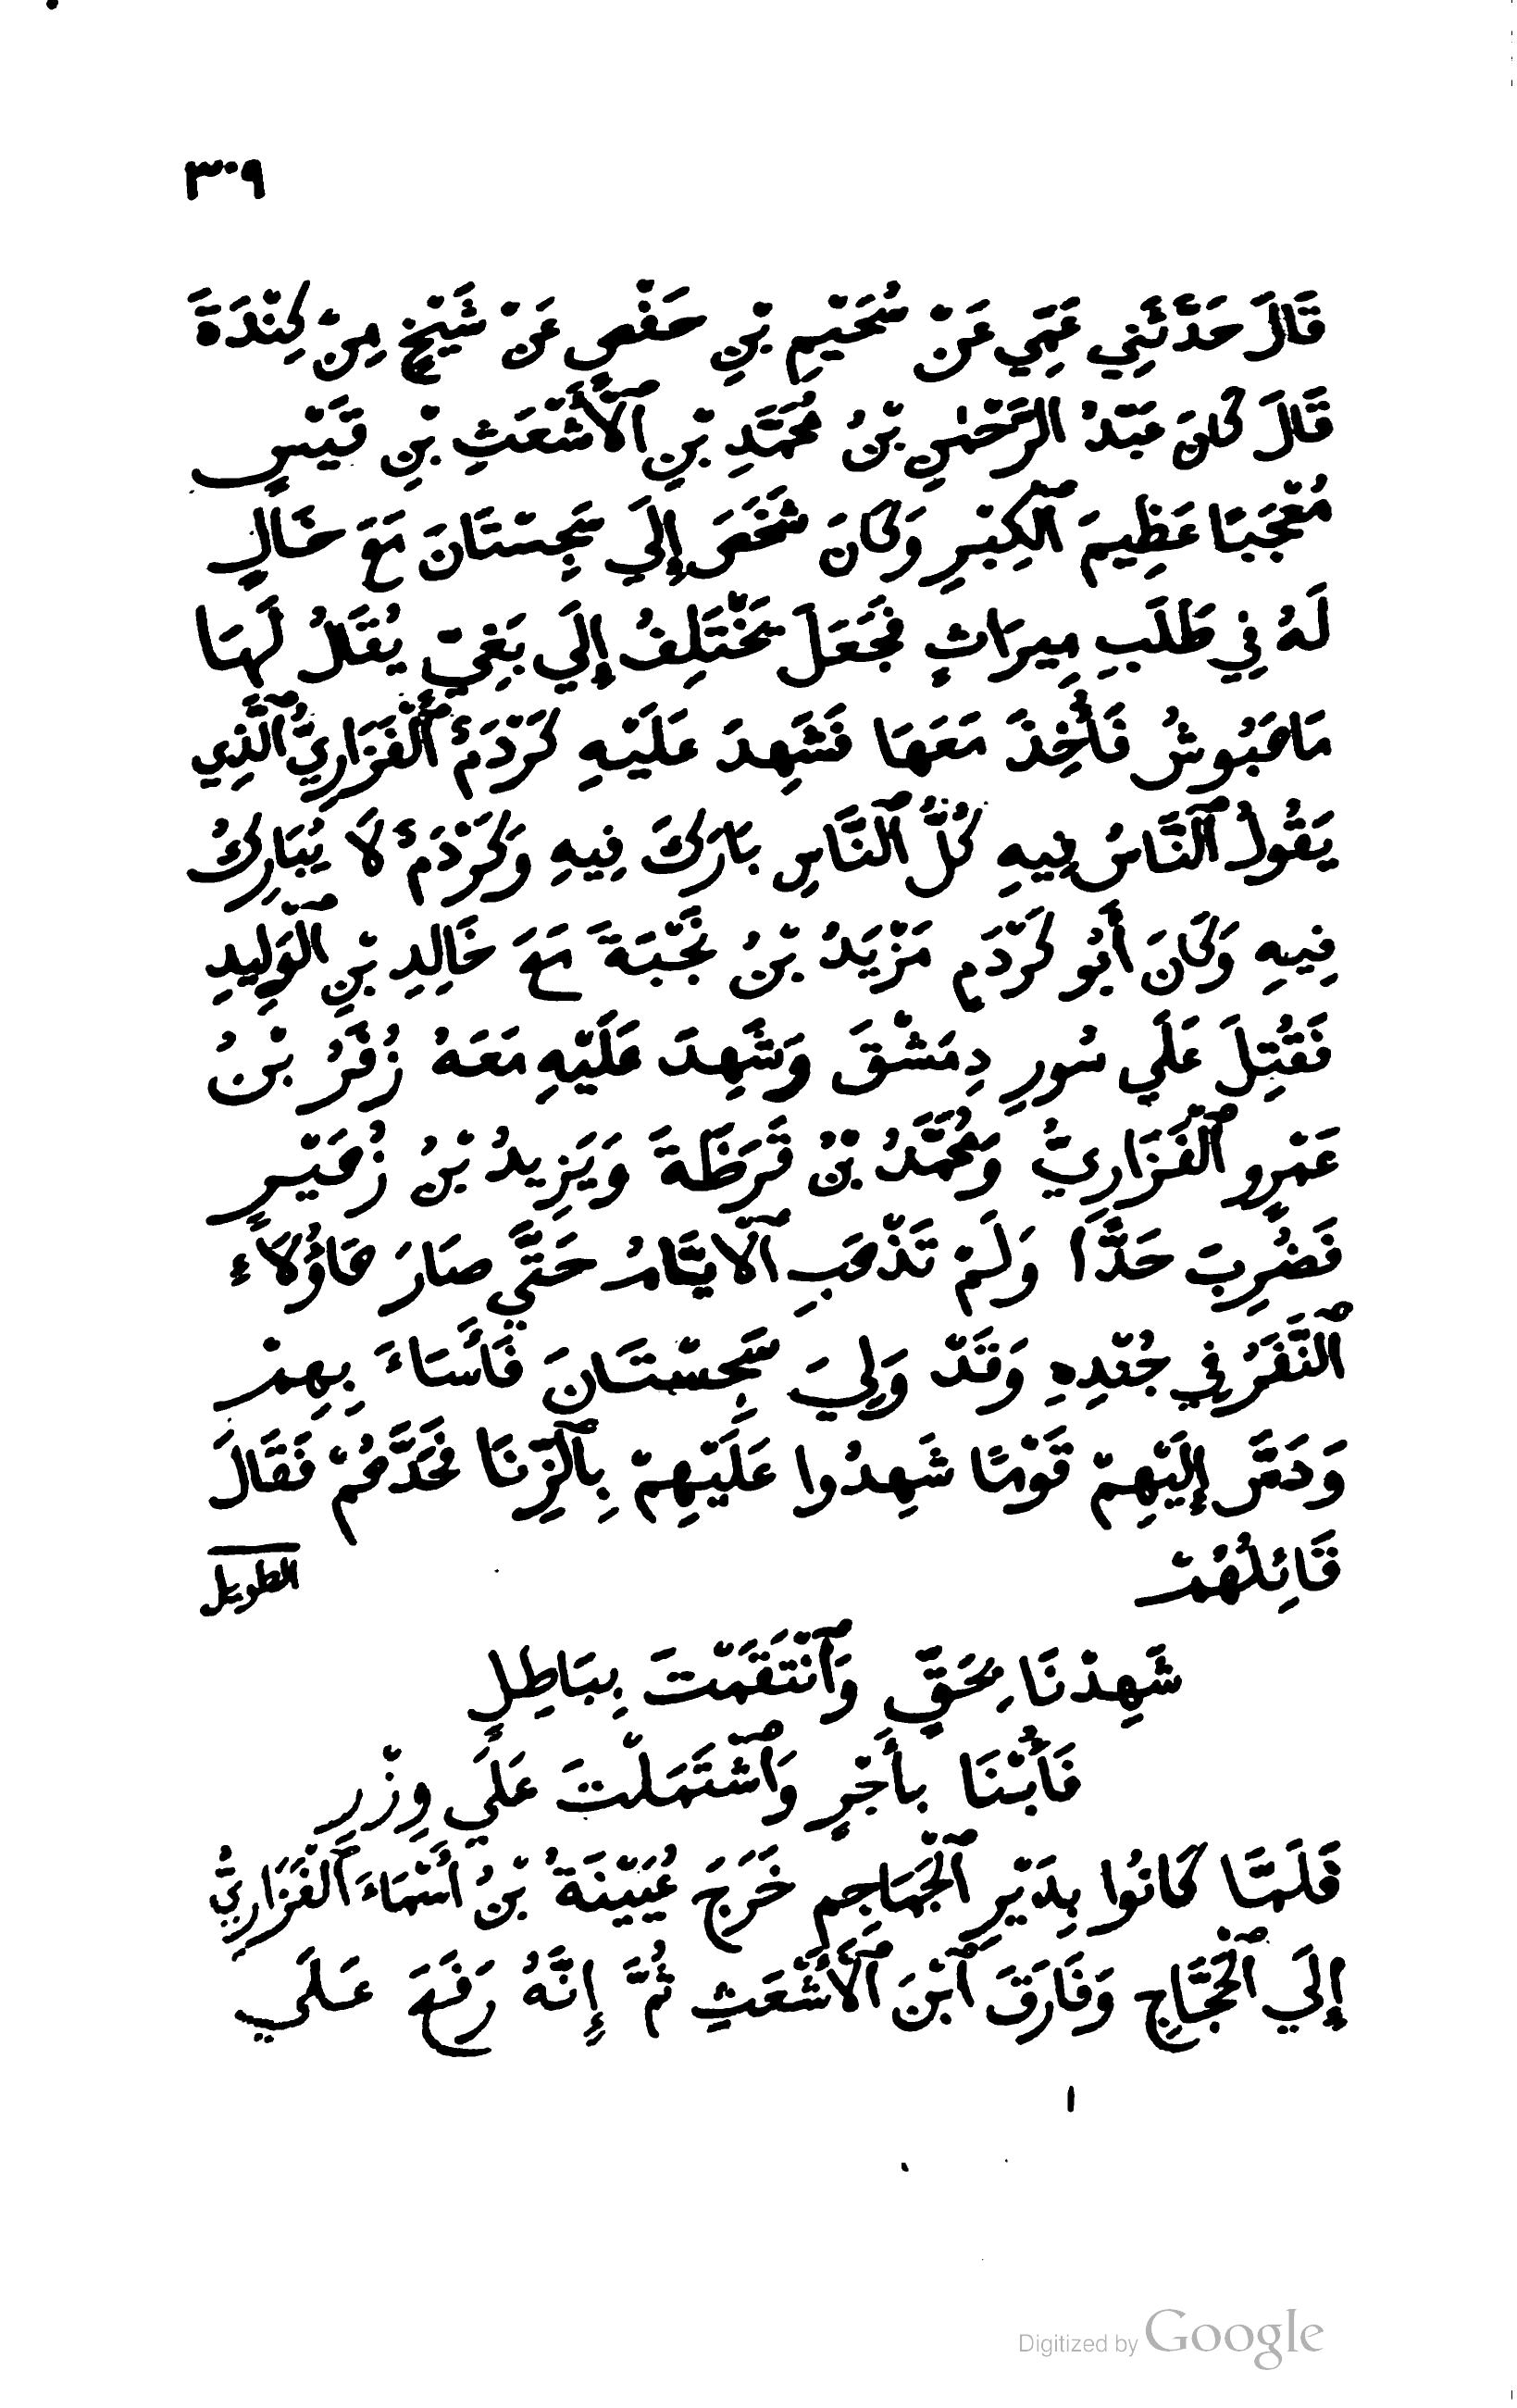 ٣٠٩
قَالَ حَدَّثَنِي عَمِّي عَنْ سُحَيْمِ بْنِ حَفْصٍ عَنْ شَيْخٍ مِنْ كِنْدَةَ
قَالَ كَانَ عَبْدُ الرَّحْمٰنِ بْنُ مُحَمَّدِ بْنِ ٱلْأَشْعَثِ بْنِ قَيْسٍ
مُعْجَبًا عَظِيمَ ٱلْكِبْرِ وَكَانَ شَخَصَ إِلَي سَجِسْتَانَ مَعَ خَالٍ
لَهُ فِي طَلَبِ مِيرَاثٍ فَجَعَلَ يَخْتَلِفُ إِلَي بَغِيٍّ يُقَلُ لَهَا
مَاهَبُوشُ فَأُخِذَ مَعَهَا فَشَهِدَ عَلَيْهِ كَرْدَمٌ ٱلْفَزَارِيُّ ٱلَّذِي
يَقُولُ ٱلنَّاسُ فِيهِ كُلَّ ٱلنَّاسِ بَارَكَ فِيهِ وَكَرْدَمٌ لَا يُبَارِكُ
فِيهِ وَكَانَ أَبُو كَرْدَمٍ مَزْيَدُ بْنُ نَجْبَةَ مَعَ خَالِدِ بْنِ ٱلْوَلِيدِ
فَقُتِلَ عَلَي سُورِ دِمَشْقَ وَشَهِدَ عَلَيْهِ مَعَهُ زُفَرُ بْنُ
عَمْرٍو ٱلْفَزَارِيُّ وَمُحَمَّدُ بْنُ قَرَظَةَ وَيَزِيدُ بْنُ زُهَيْرٍ
فَضُرِبَ حَدًّا وَلَمْ تَذْهَبِ ٱلْايَّامُ حَتَّي صَارَ هَاؤُلَاءِ
ٱلنَّفَرُ فِي جُنْدِهِ وَقَدْ وَلِيَ سَجِسْتَانَ فَأَسَاءَ بِهِمْ
وَدَسَّ إِلَيْهِمْ قَوْمًا شَهِدُوا عَلَيْهِمْ بِٱلزِّنَا فَحَدَّهُمْ فَقَالَ
قَائِلُهُمْ الطويل
شَهِدْنَا بِحَقٍّ وَٱنْتَقَمْتَ بِبَاطِلٍ
فَأُبْنَا بِأَجْرٍ وَٱشْتَمَلْتَ عَلَي وِزْرِ
فَلَمَّا كَانُوا بِدَيْرِ ٱلْجَمَاجِمِ خَرَجَ عُيَيْنَةُ بْنُ أَسْمَاءَ ٱلْفَزَارِيُّ
إِلَي ٱلْحَجَّاجِ وَفَارَقَ ٱبْنَ ٱلْأَشْعَثِ ثُمَّ إِنَّهُ رَفَعَ عَلَي
Digitized by Google